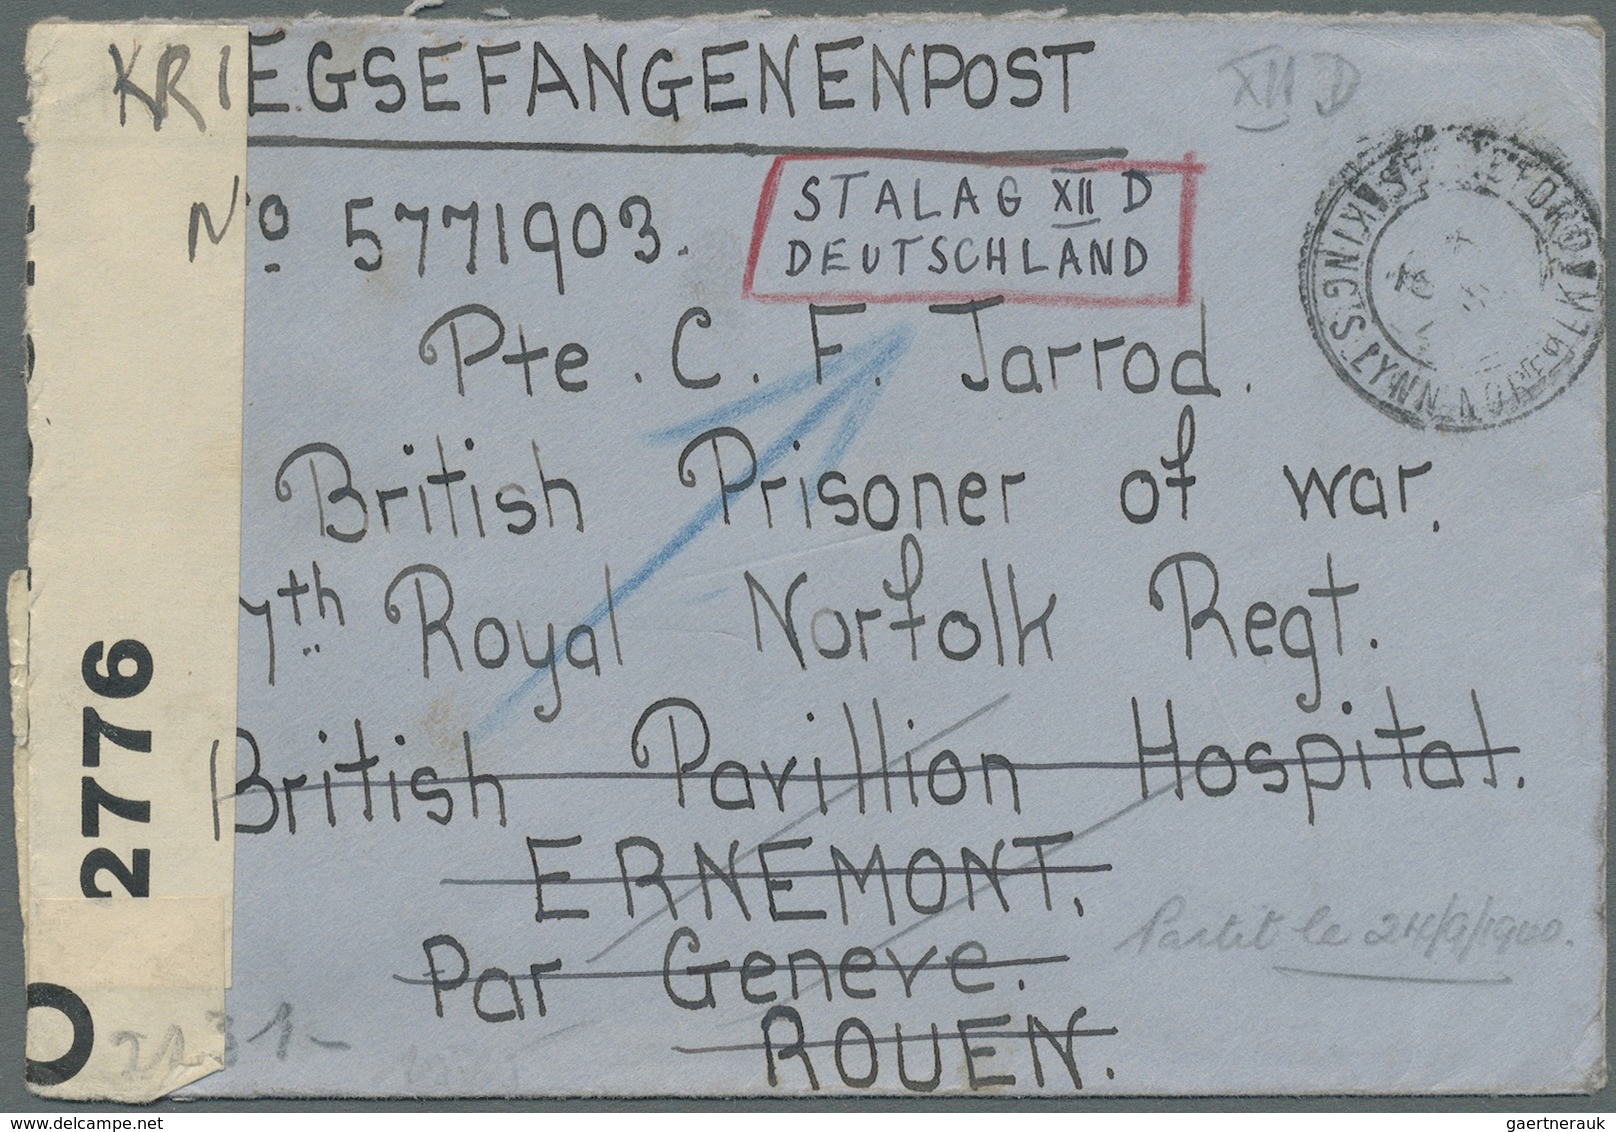 KRIEGSEFANGENENPOST
XII D
Nº 5771903.
STALAG XII D
DEUTSCHLAND
Pte. C. F. Jarrod.
British Prisoner of war.
7th Royal Norfolk Regt.
British Pavillion Hospital.
ERNEMONT.
Par Geneve.
ROUEN.
Partit le 24/9/1940.
2776
KING'S LYNN NORFOLK
gaertnerauk @ delcampe.net